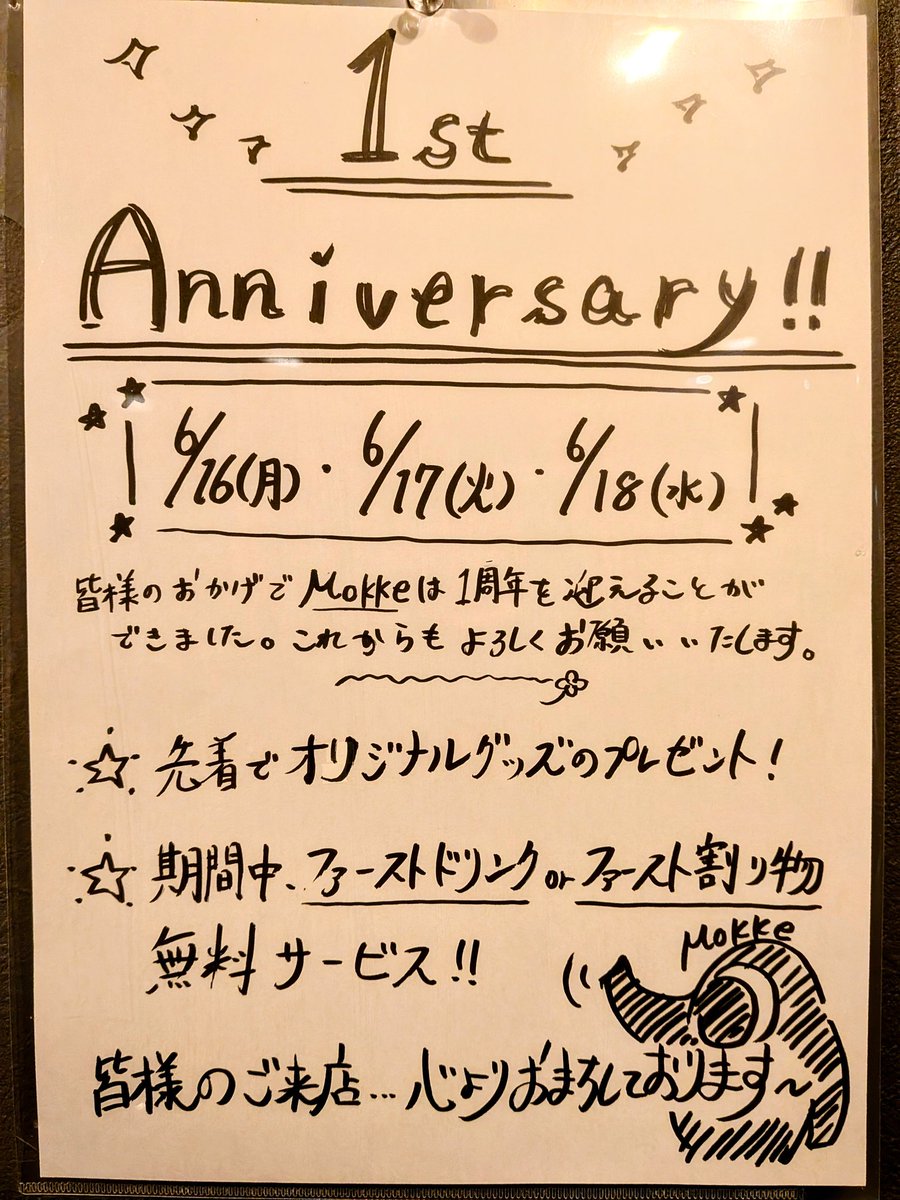 1st
Anniversary!!
6/16(月)・6/17(火)・6/18(水)
皆様のおかげでMokkeは1周年を迎えることが
できました。これからもよろしくお願いいたします。
☆先着でオリジナルグッズのプレゼント!
☆期間中、ファーストドリンクorファースト割り物
無料サービス!!
Mokke
皆様のご来店…心よりおまちしております〜